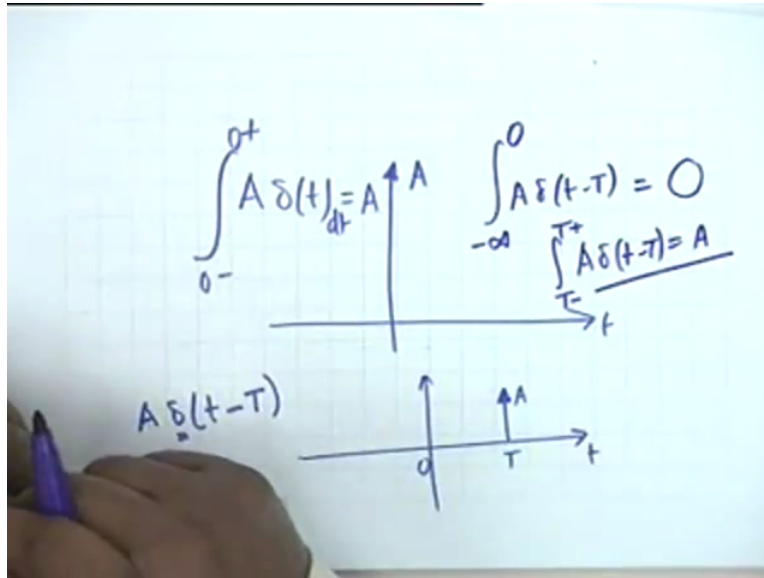 ∫_{0-}^{0+} A δ(t) dt = A
A
∫_{-∞}^{0} A δ(t-T) = 0
∫_{T-}^{T+} A δ(t-T) = A
t
A δ(t-T)
A
0 T t